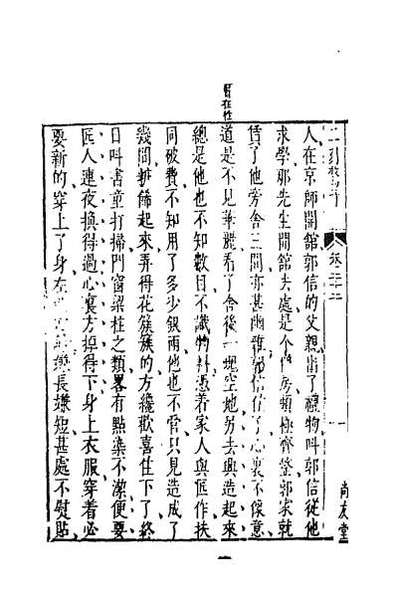 二刻驚奇 卷二十二 一 尚友堂
人在京師開館郭信的父親出了禮物叫郭信從他
求學那先生開館去處是个僧房頗極齊整郭家就
賃了他旁舍三間亦甚幽雅郭信住了心裏不像意
道是不見華麗看了舍後一塊空地另去興造起來
總是他也不知數目不識物料憑着家人與匠作扶
同破費不知用了多少銀兩他也不管只見造成了
幾間粧飾起來弄得花簇簇的方纔歡喜住下了終
日叫書童打掃門窗梁柱之類畧有點染不潔便要
匠人連夜換得過心裏方掉得下身上衣服穿着必
要新的穿上了身左長嫌短甚處不熨貼